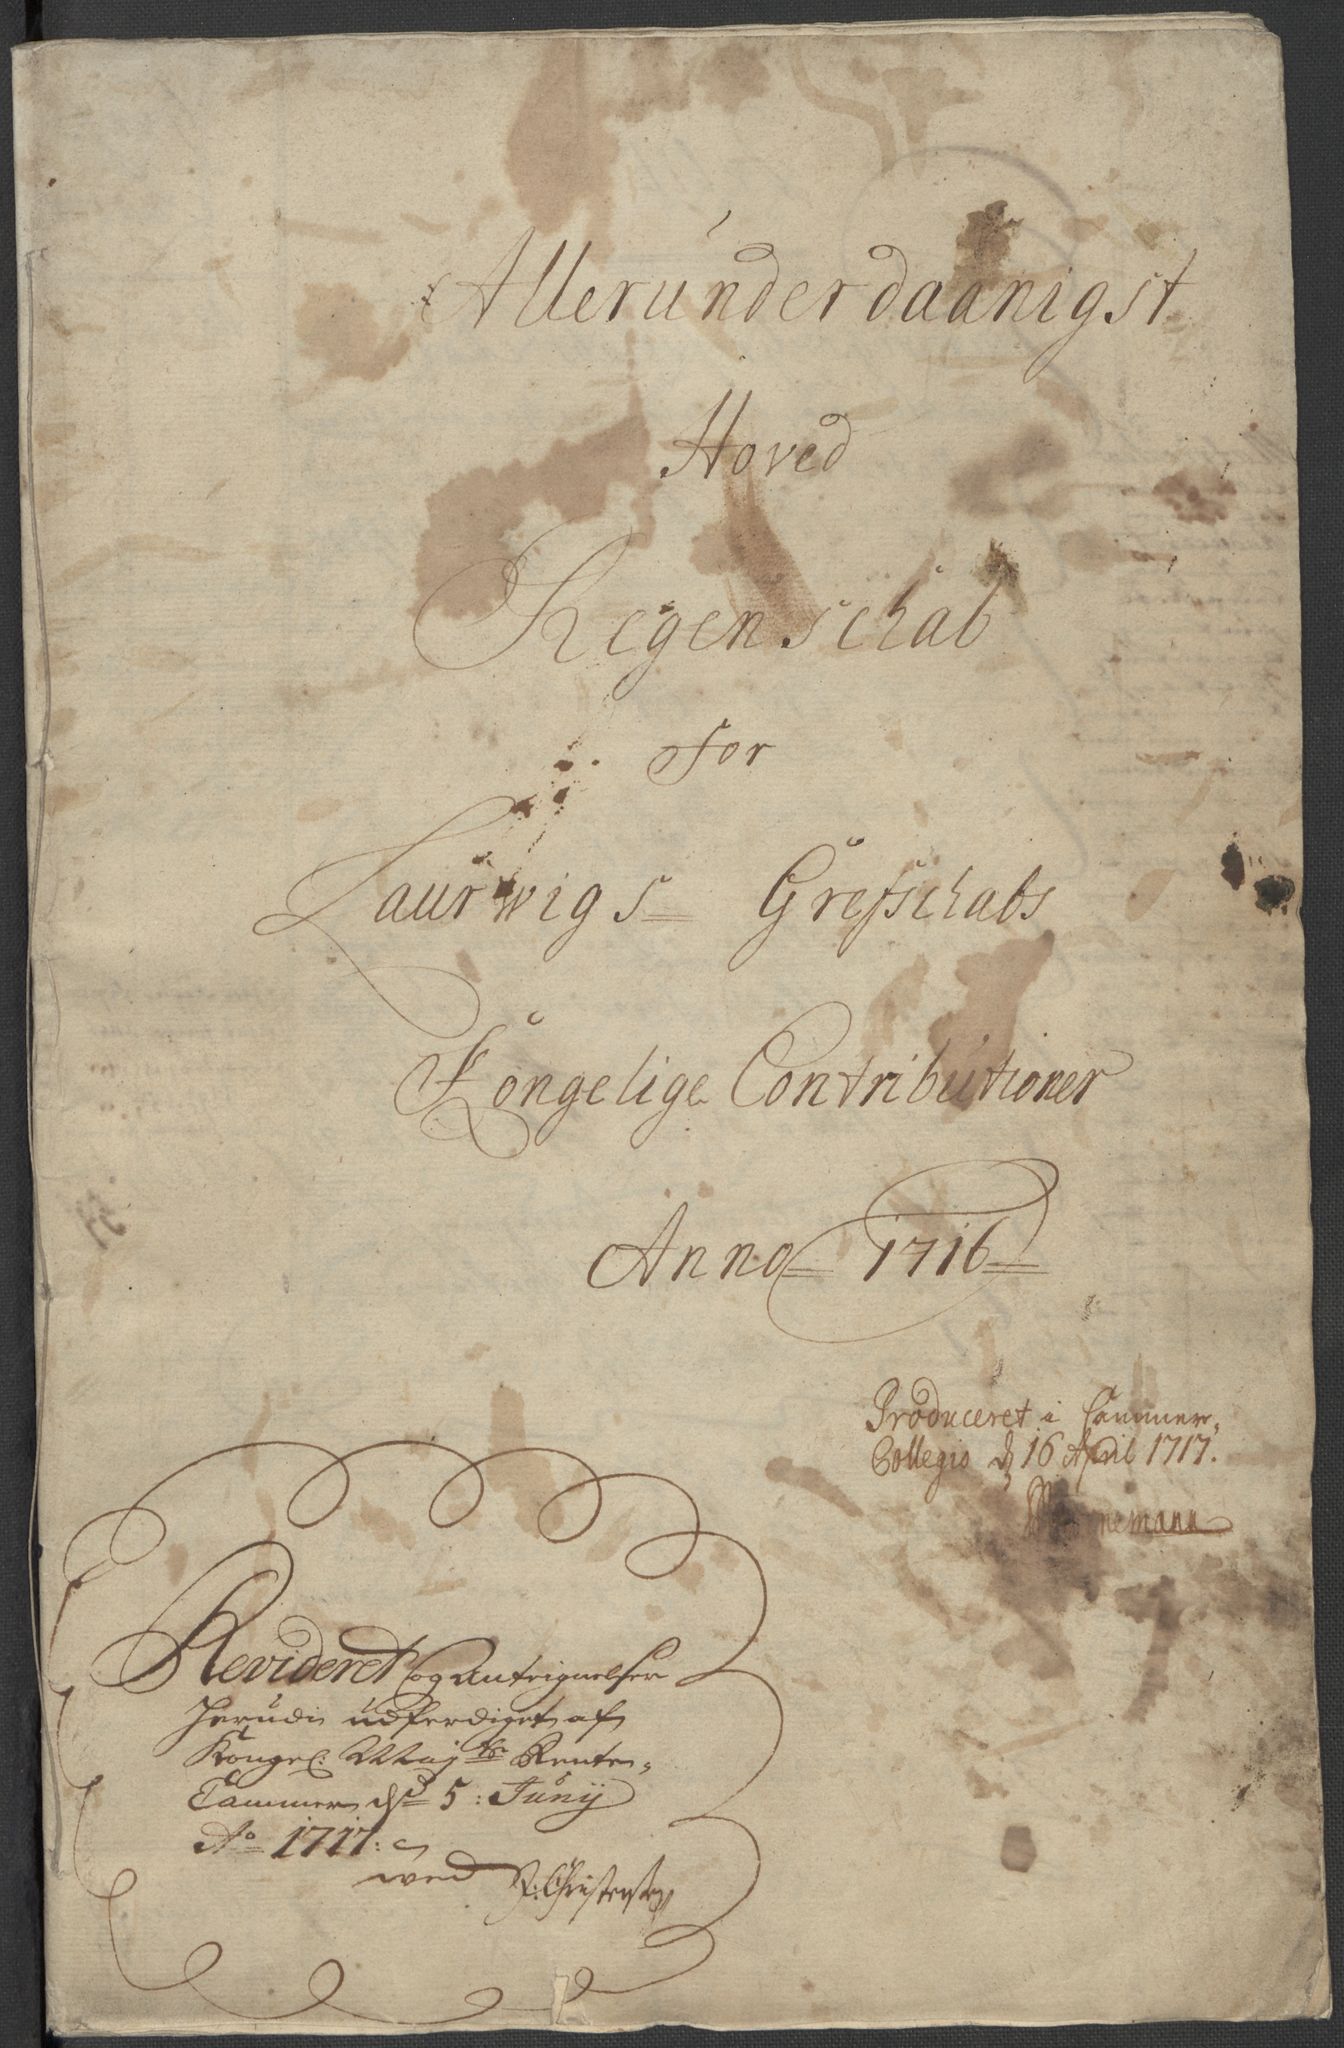 Allerunderdaanigst
Hoved
Regenschab
for
Laurwigs Grefschabs
Kongelige Contributioner
Anno 1716
Produceret i Cammer,
Collegio d 16 April 1717.
Revideret og Anteignelser
herudi udferdiget af
Kongel: Maj:ts Rente,
Cammer d 5: Juny
Ao 1717:
wed Christensen